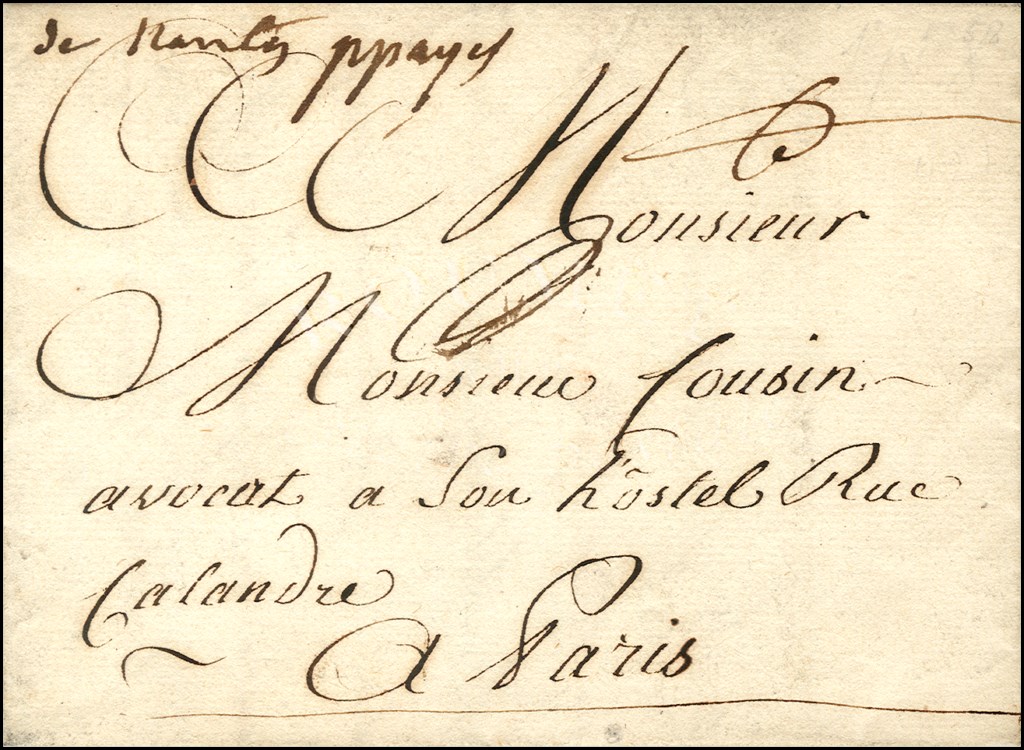 de Nantes ppayé
Monsieur
Monsieur Cousin
avocat a Son hôstel Rue
Calandre
A Paris